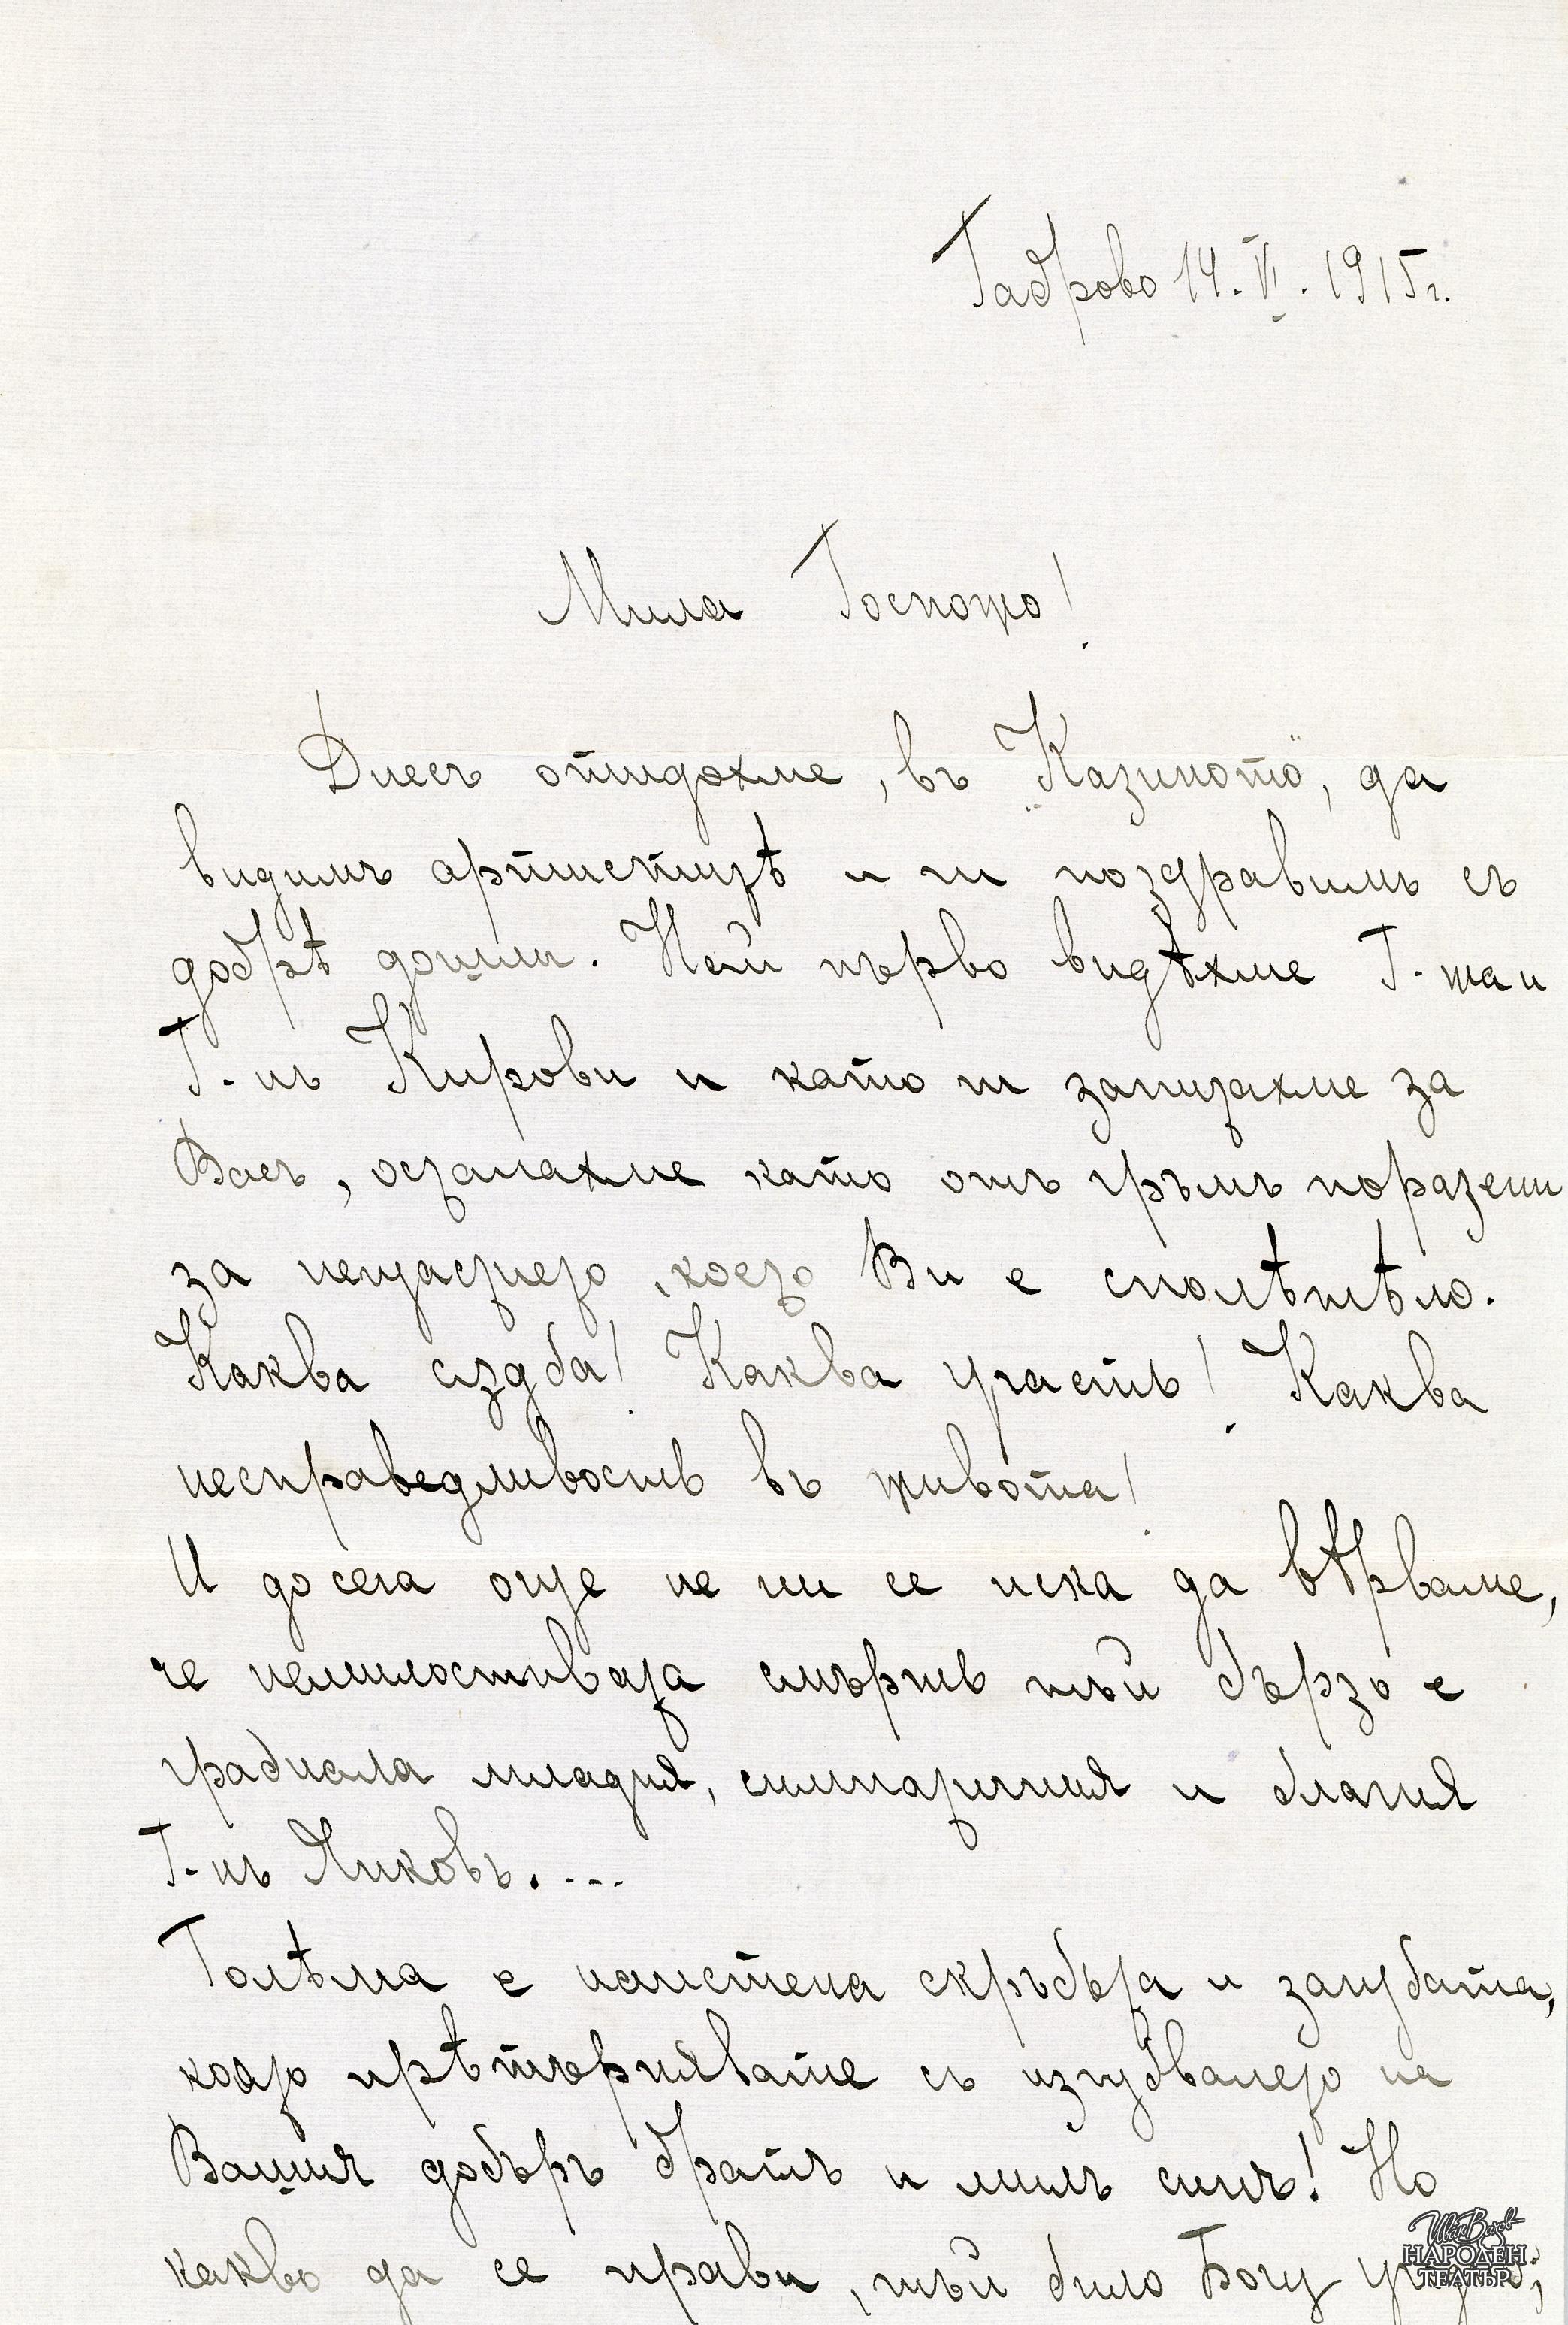 Габрово 14. VI. 1915 г.
Мила Госпожо!
Днесъ отидохме, въ "Казиното", да
видимъ артиститѣ и ги поздравимъ съ
добрѣ дошли. Най първо видѣхме Г-жа и
Г-нъ Кирови и като ги запитахме за
Васъ, останахме като отъ гръмъ поразени
за нещастието, което Ви е сполѣтѣло.
Каква сѫдба! Каква участь! Каква
несправедливость въ живота!
И до сега още не ни се иска да вѣрваме,
че немилостивата смърть тъй бързо е
грабнала младия, симпатичния и благия
Г-нъ Янковъ....
Голѣма е наистена скръбьта и загубата,
която прѣтърпявате съ изгубването на
Вашия добъръ братъ и милъ синъ! Но
какво да се прави, тъй било Богу
Иван Вазов
НАРОДЕН
ТЕАТЪР